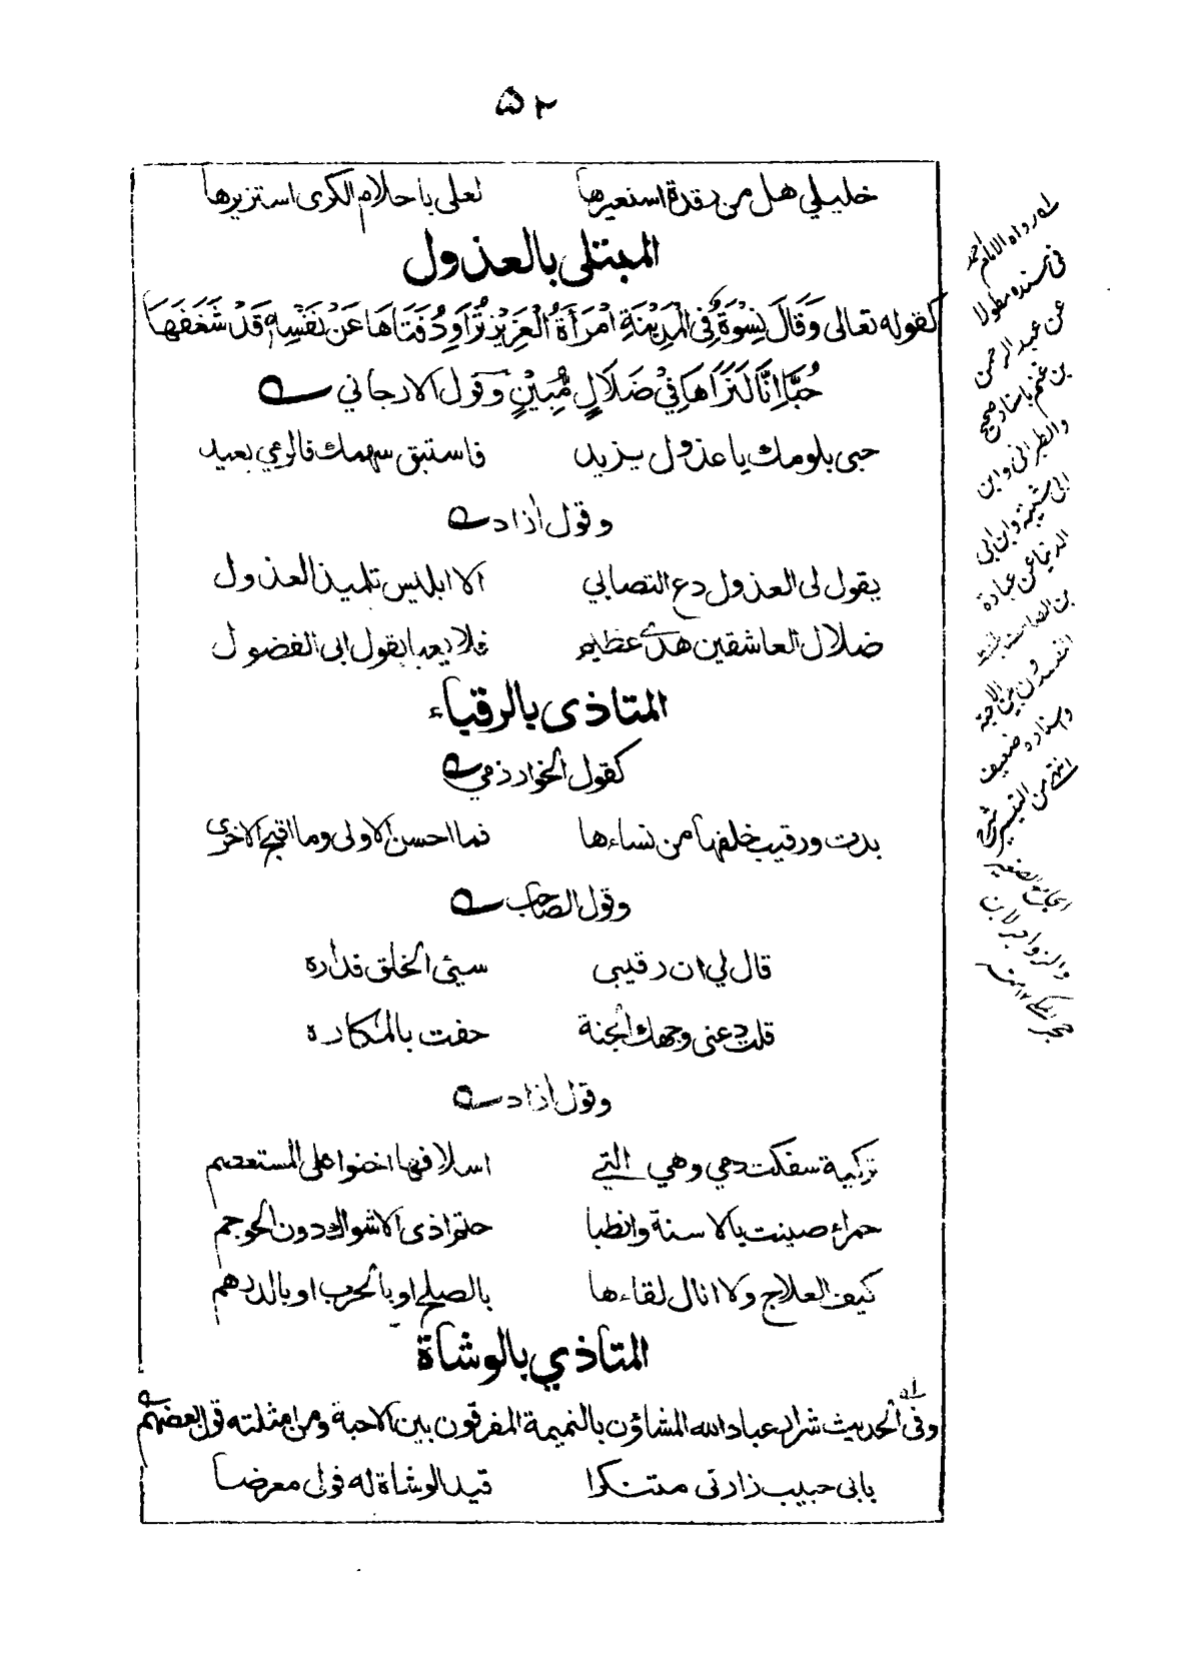 ۵۲
خليلي هل من رقدة استعيرها لعلى باحلام الكرى استزيرها
المبتلى بالعذول
كقوله تعالى وَقَالَ نِسْوَةٌ فِى الْمَدِيْنَةِ امْرَأَةُ الْعَزِيْزِ تُرَاوِدُ فَتَاهَا عَنْ نَفْسِهِ قَدْ شَغَفَهَا
حُبًّا اِنَّا لَنَرَاهَا فِيْ ضَلَالٍ مُّبِيْنٍ وقول الارجاني
حبى بلومك يا عذول يزيد فاستبق سهمك فالرمي بعيد
وقول آزاد
يقول لى العذول دع التصابي الا ابليس تلميذ العذول
ضلال العاشقين هدى عظيم فلا يعبا بقول ابى الفضول
المتاذى بالرقباء
كقول الخوارزمي
بدت ورقيب خلفها من نساءها فما احسن الاولى وما اقبح الاخرى
وقول الصاحب
قال لي ان رقيبى سيئ الخلق فداره
قلت دعنى وجهك الجنة حفت بالمكاره
وقول آزاد
تركية سفكت دمي وهي التي اسلافها اخنوا على المستعصم
حمراء صينت بالاسنة والظبا حلم اذى الاشواك دون الحوجم
كيف العلاج ولا انال لقاءها بالصلح او بالحرب او بالدرهم
المتاذي بالوشاة
وفى الحديث له شرار عباد الله المشاؤن بالنميمة المفرقون بين الاحبة ومن امثلته قول بعضهم
بابى حبيب زارنى متنكرا فبدا الوشاة له فولى معرضا
له رواه الامام احمد
فى مسنده مطولا
عن عبد الرحمن
بن غنم باسناد صحيح
والطبرانى وابن
ابى شيبة وابن ابى
الدنيا عن عبادة
بن الصامت بلفظ
المفسدون بين الاحبة
وسناده ضعيف
انتهى من التيسير شرح
الجامع الصغير
والزواجر لابن
حجر المكى ١٢ منه